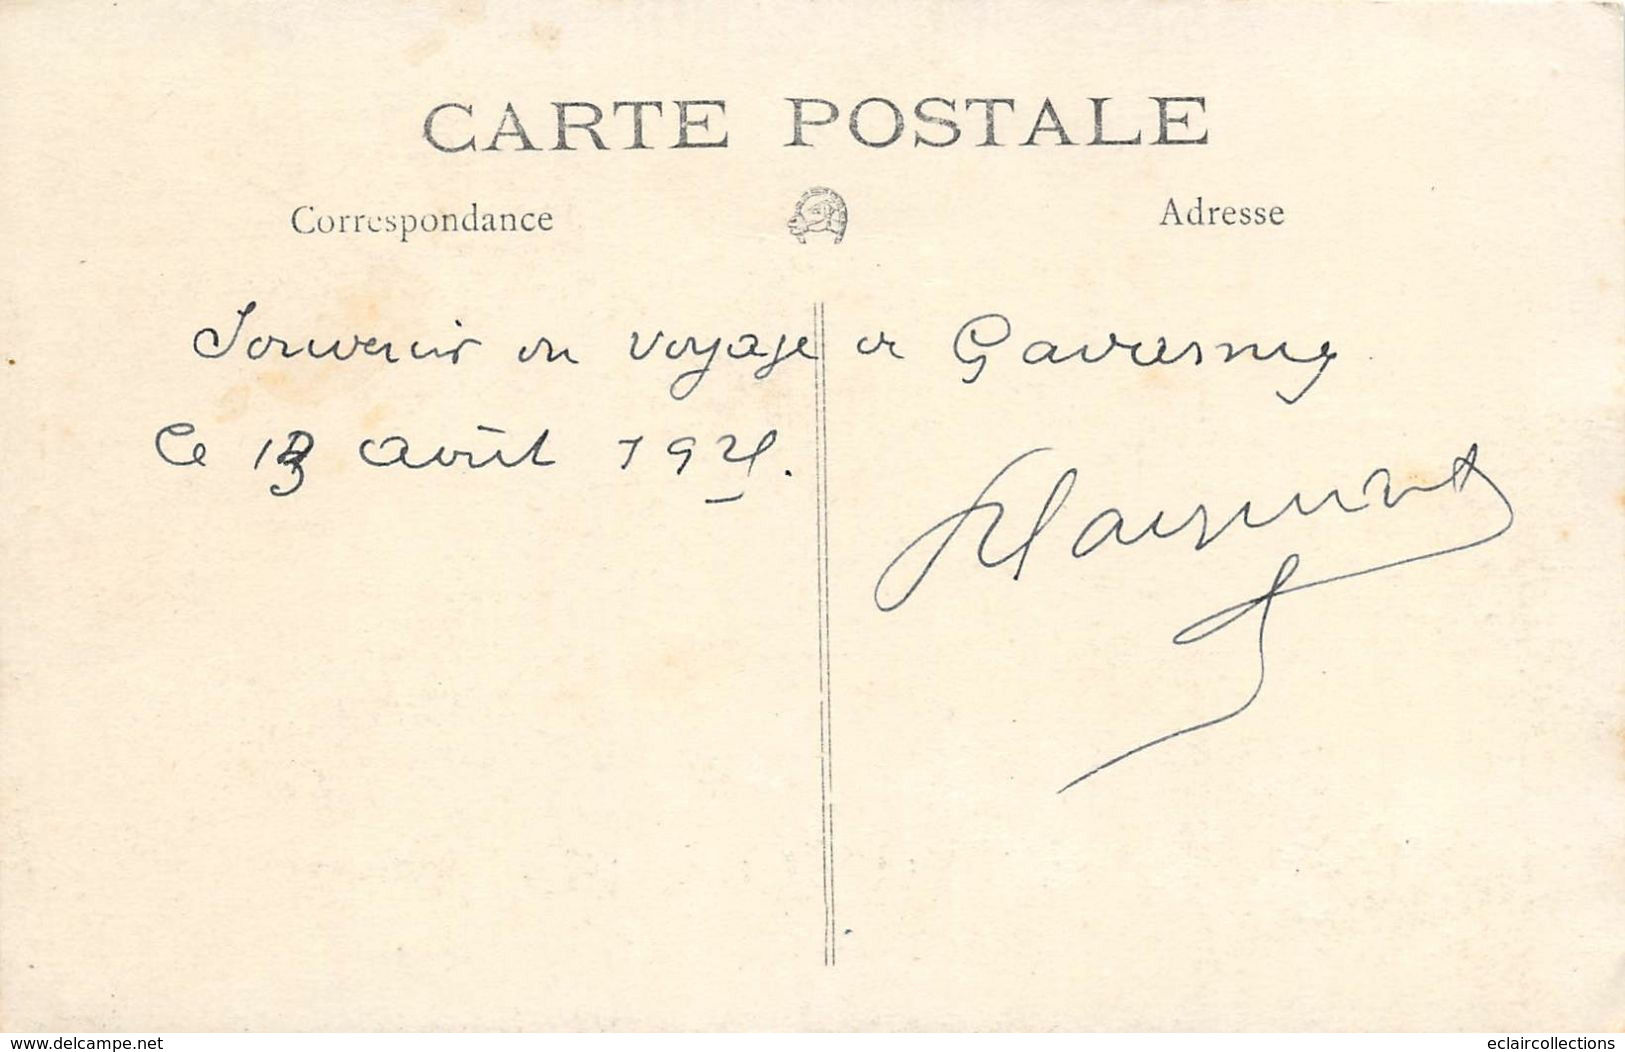 CARTE POSTALE
Correspondance
Adresse
Souvenir du voyage a Gavarnie
le 13 août 192
delcampe.net
eclaircollections